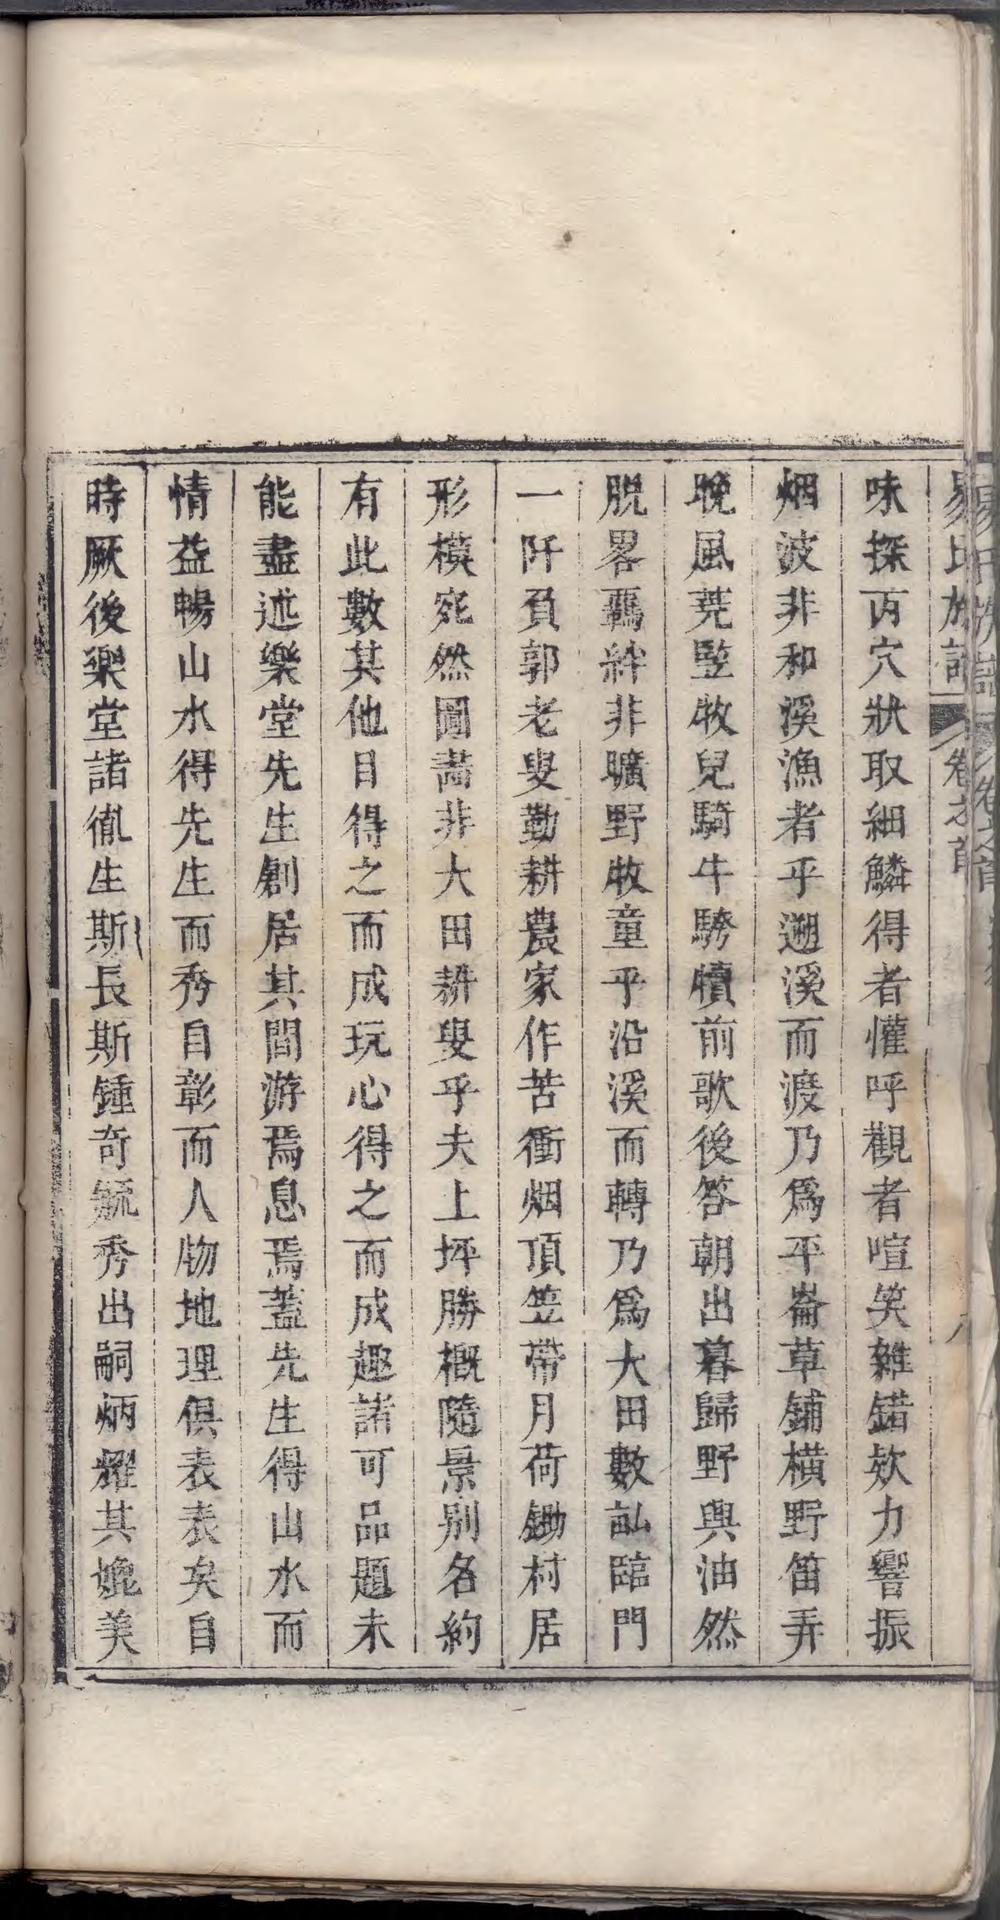 易氏族譜 卷之首 八
味探丙穴狀取細鱗得者懽呼觀者喧笑雜錯欸力響振
烟波非和溪漁者乎遡溪而渡乃爲平崙草鋪橫野笛弄
晚風蕘豎牧兒騎牛騁犢前歌後答朝出暮歸野興油然
脫畧羈絆非曠野牧童乎沿溪而轉乃爲大田數畝臨門
一阡負郭老叟勤耕農家作苦衝烟頂笠帶月荷鋤村居
形橫宛然圖畵非大田耕叟乎夫上坪勝槪隨景别名約
有此數其他目得之而成玩心得之而成趣諸可品題未
能盡述樂堂先生創居其間游焉息焉蓋先生得山水而
情益暢山水得先生而秀自彰而人物地理俱表表矣自
時厥後樂堂諸胤生斯長斯鍾奇毓秀出嗣炳耀其媲美